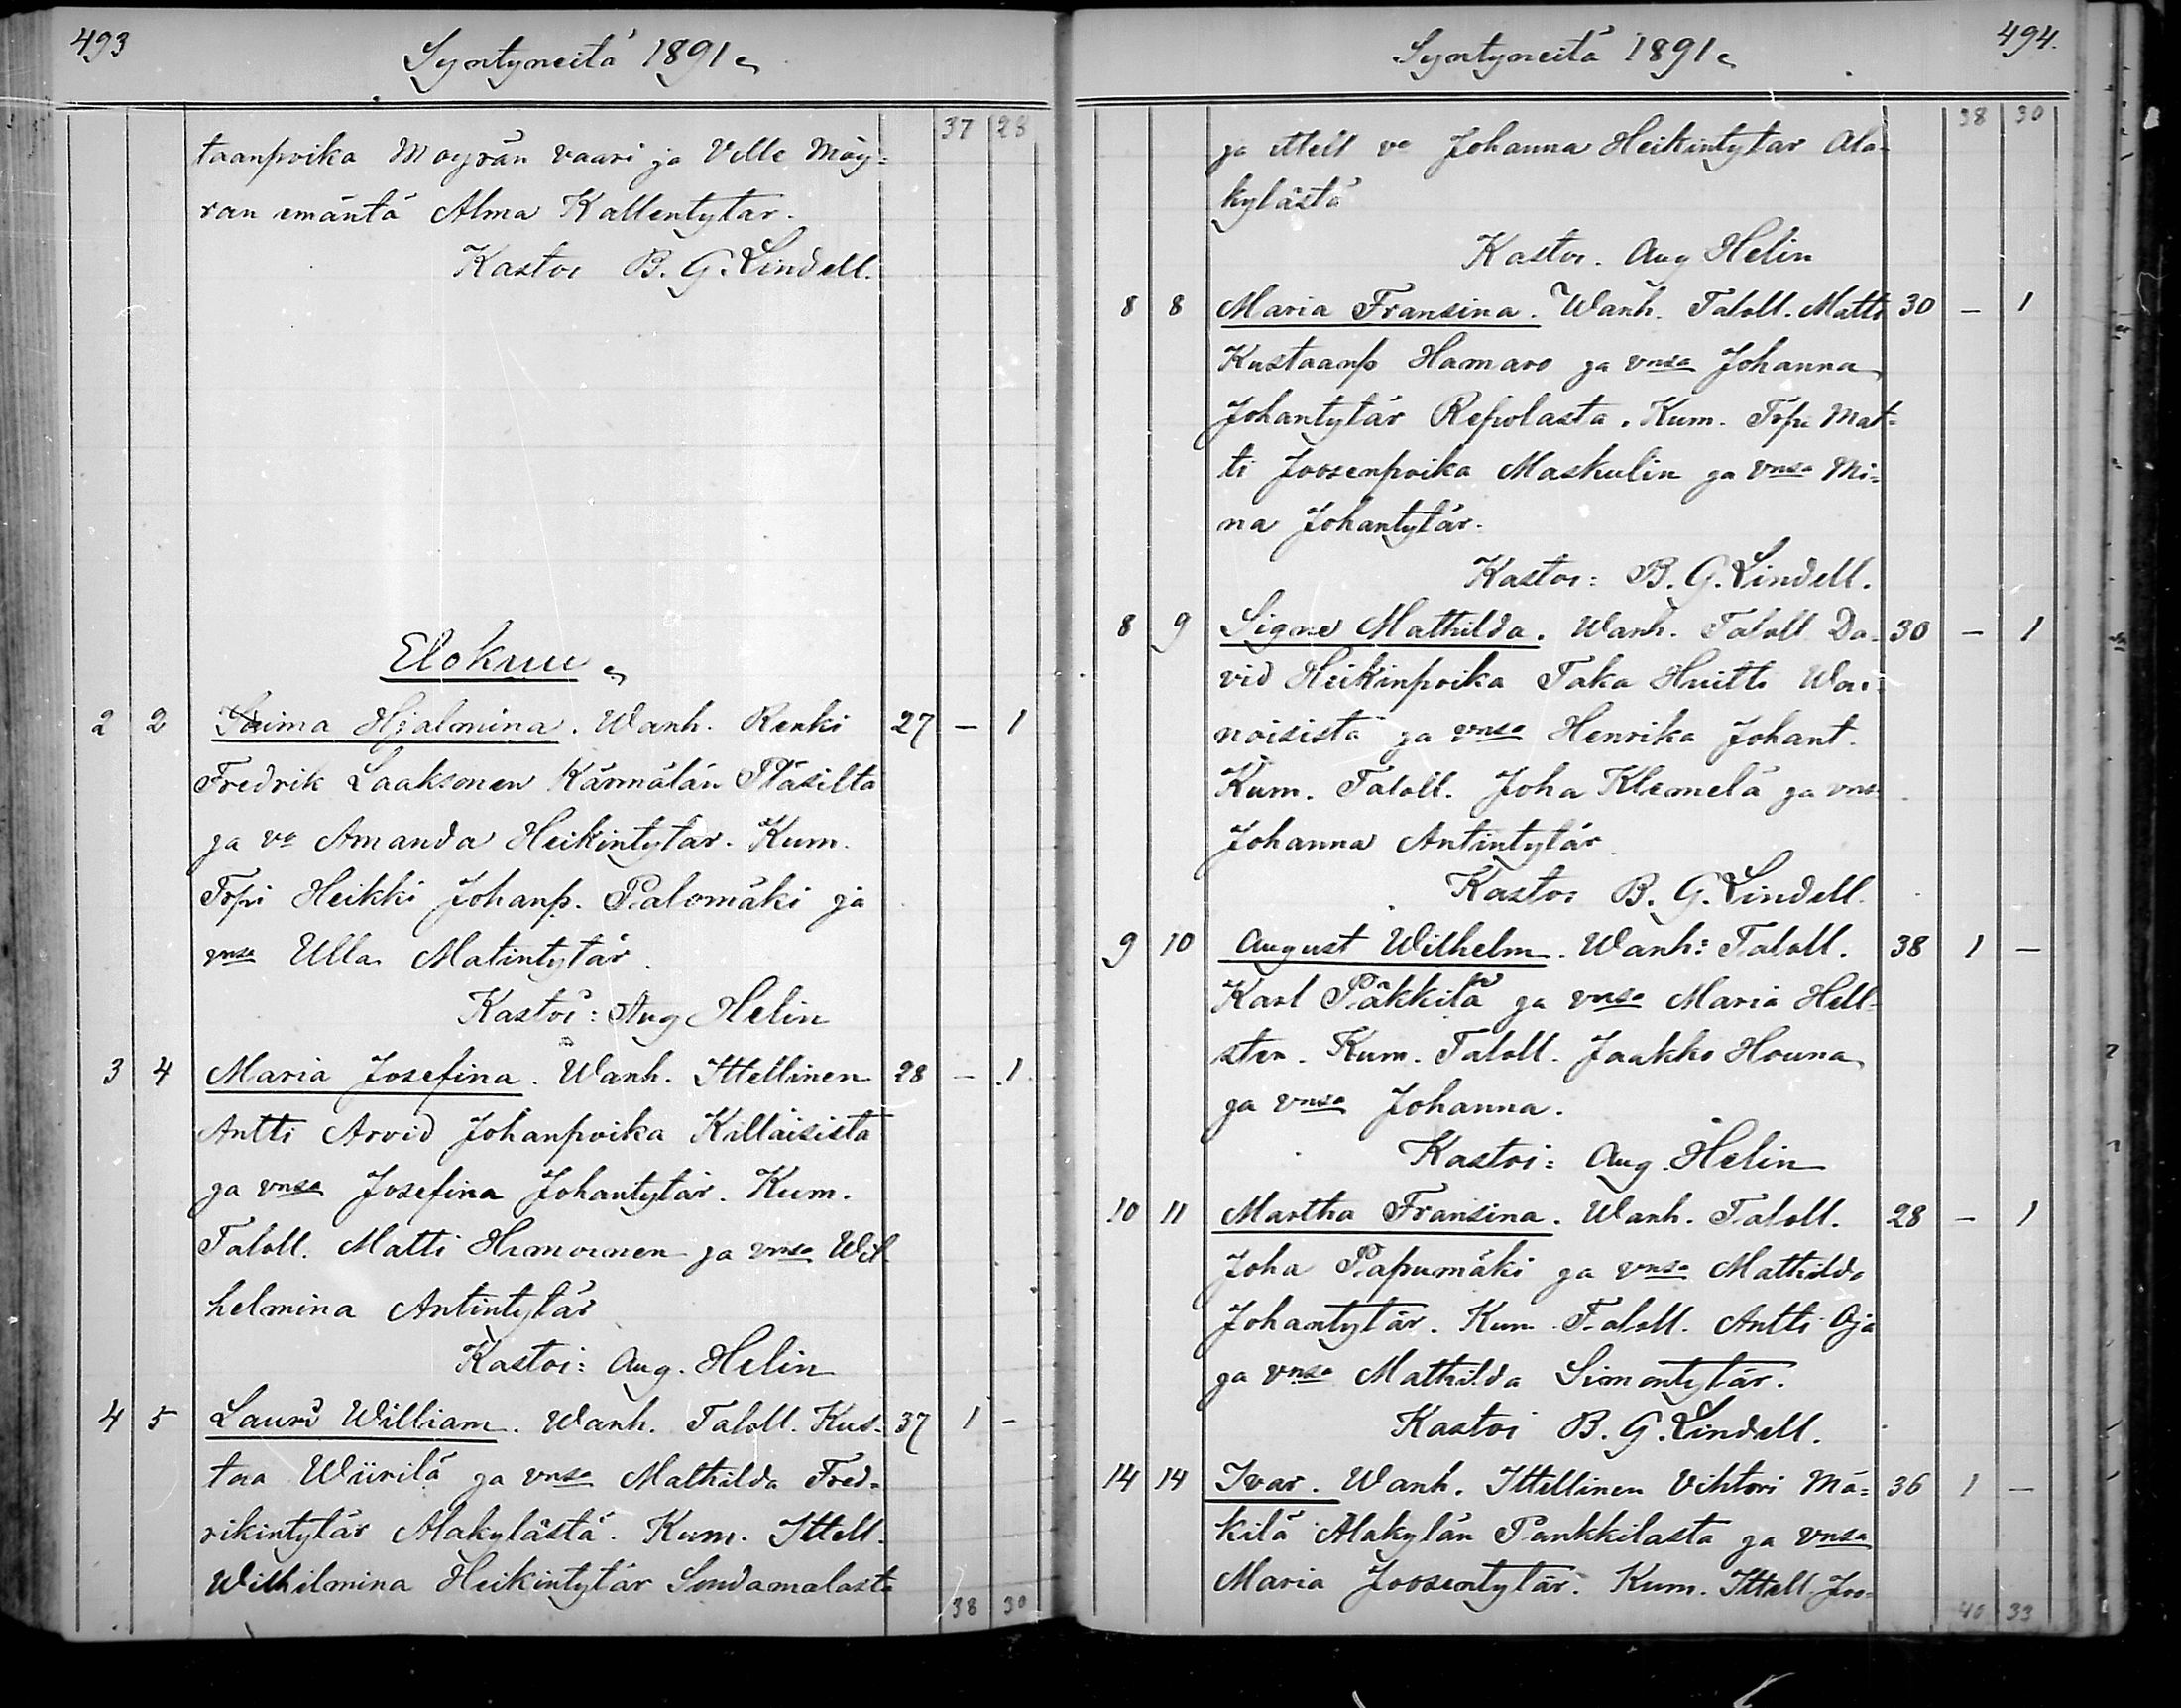 493
Syntyneitä 1891
37 28
taanpoika Mäyrän vaari ja Ville Mäy-
rän emäntä Alma Kallentytär.
Kastoi B. G. Lindell.
Elokuu
2 2 Hjalmina. Wanh. Renki 27 — 1
Fredrik Laaksonen Kärmälän
ja vo Amanda Heikintytär. Kum.
Torpi Heikki Johanp. Palomäki ja
vnsa Ulla Matintytär.
Kastoi: Aug Helin
3 4 Maria Josefina. Wanh. Ittellinen 28 — 1
Antti Arvid Johanpoika Källäisistä
ja vnsa Josefina Johantytär. Kum.
Taloll. Matti ja vnsa Wil-
helmina Antintytär
Kastoi: Aug. Helin
4 5 Lauri William. Wanh. Taloll. Kus- 37 1 -
taa Wiirilä ja vnsa Mathilda Fred-
rikintytär Alakylästä. Kum. Ittell.
Wilhilmina Heikintytär
38 30
494.
Syntyneitä 1891
38 30
ja ittell vo Johanna Heikintytär Ala-
kylästä
Kastoi. Aug Helin
8 8 Maria Fransina. Wanh. Taloll. Matti 30 — 1
Kustaanp Hamaro ja vnsa Johanna
Johantytär Repolasta. Kum. Torpi Mat-
ti Joosenpoika Maskulin ja vnsa Mi-
na Johantytär.
Kastoi: B. G. Lindell.
8 9 Signe Mathilda. Wanh. Taloll Da- 30 — 1
vid Heikinpoika Taka Huitti Wäi-
nöisistä ja vnsa Henrika Johant.
Kum. Taloll. Joha Klemelä ja vnsa
Johanna Antintytär.
Kastoi B. G. Lindell.
9 10 August Wilhelm. Wanh: Taloll. 38 1 —
Karl Päkkilä ja vnsa Maria Hell-
sten. Kum. Taloll. Jaakko Houna
ja vnsa Johanna.
Kastoi: Aug. Helin
10 11 Martha Fransina. Wanh. Taloll. 28 — 1
Joha Papumäki ja vnsa Mathilda
Johantytär. Kum. Taloll. Antti Oja
ja vnsa Mathilda Simontytär.
Kastoi B. G. Lindell.
14 14 Ivar. Wanh. Ittellinen Vihtori Mä- 36 1 —
kilä Alakylän Pankkilasta ja vnsa
Maria Joosentytär. Kum. Ittell. Joo-
40 33